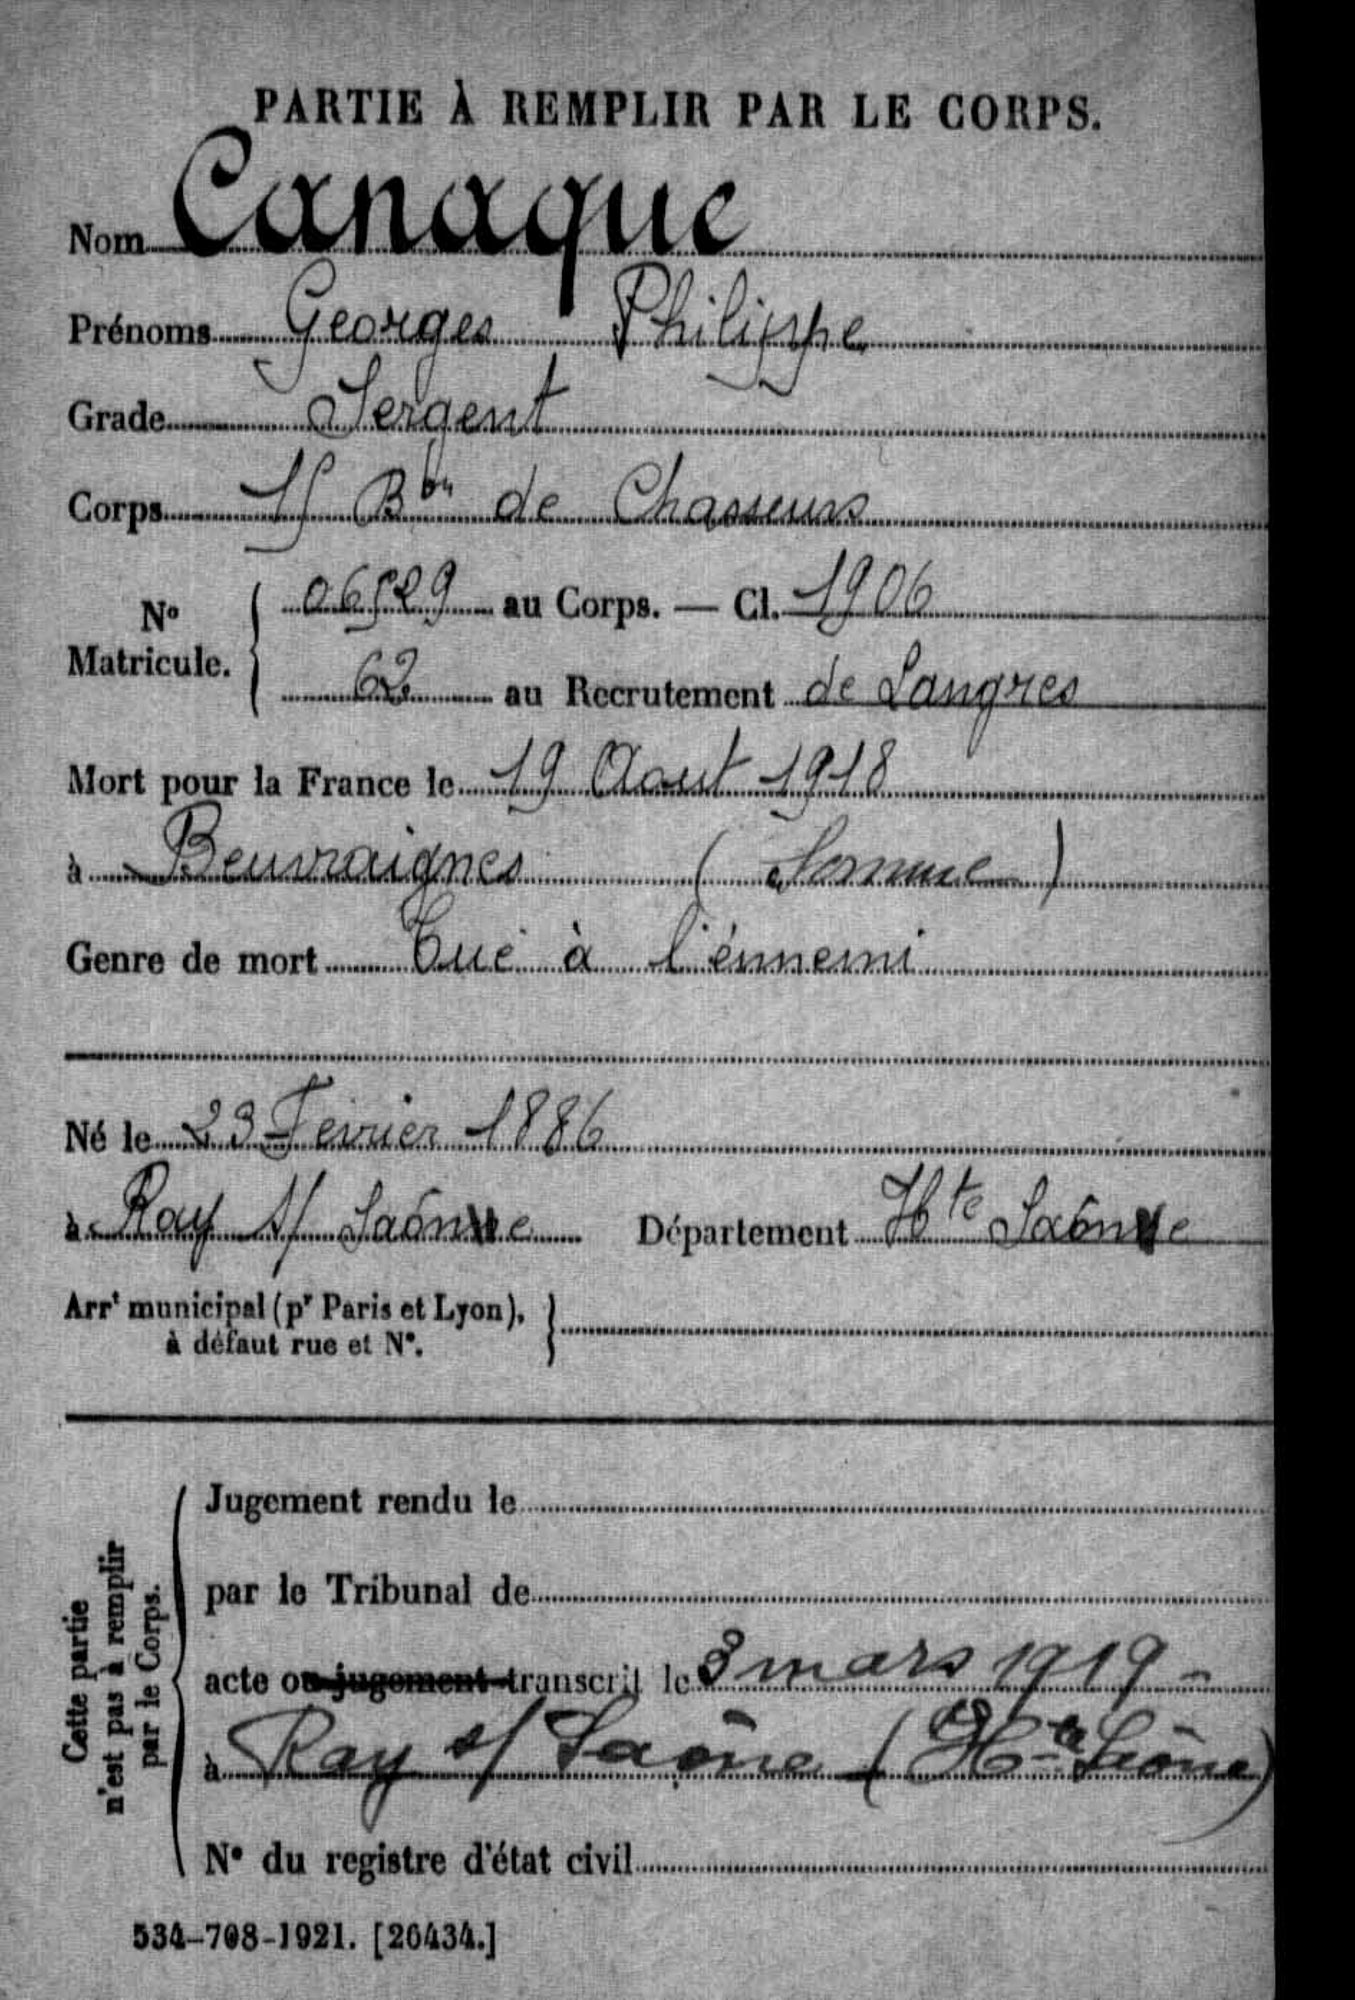 PARTIE À REMPLIR PAR LE CORPS.
Nom Canaque
Prénoms Georges Philippe
Grade Sergent
Corps 15 Bon de Chasseurs
No Matricule. { 06529 au Corps. — Cl. 1906
62 au Recrutement de Langres
Mort pour la France le 19 Aout 1918
à Beuvraignes (Somme)
Genre de mort Tué à l'énnemi
Né le 23 Février 1886
à Ray s/ Saône Département Hte Saône
Arrt municipal (pr Paris et Lyon), }
à défaut rue et N°.
Cette partie n'est pas à remplir par le Corps.
Jugement rendu le
par le Tribunal de
acte ou jugement transcrit le 3 mars 1919 -
à Ray s/ Saône (Hte Saône)
N° du registre d'état civil
534-708-1921. [26434.]